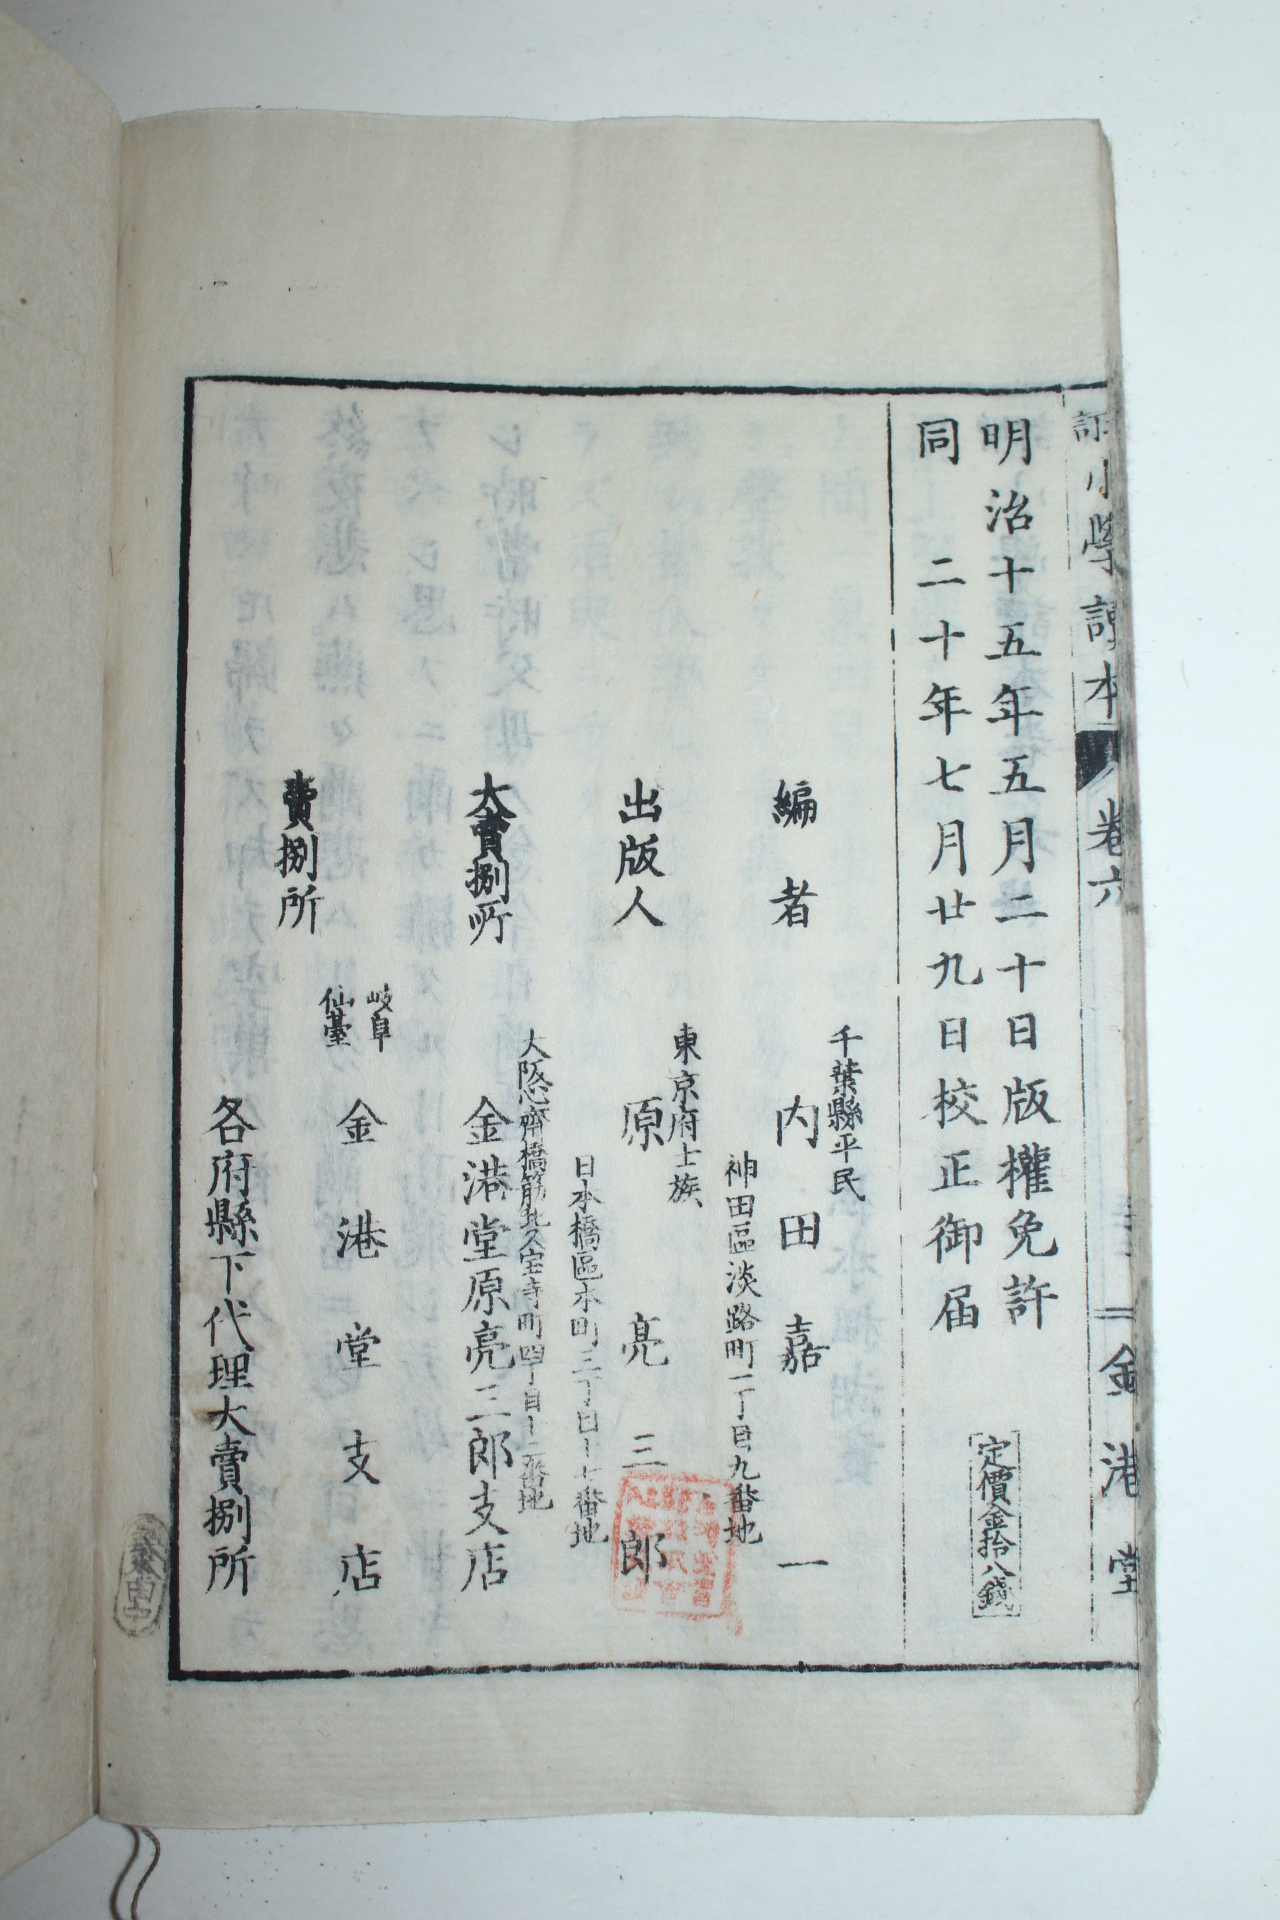 小學讀本
卷六
金港堂
明治十五年五月二十日版權免許
同二十年七月廿九日校正御届
定價金拾八錢
千葉縣平民
編者 内田嘉一
神田區淡路町一丁目九番地
東京府士族
出版人 原亮三郎
日本橋區本町三丁目十七番地
大賣捌所
大阪心齋橋筋北久宝寺町四丁目十二番地
金港堂原亮三郎支店
岐阜
仙臺
金港堂支店
賣捌所
各府縣下代理大賣捌所